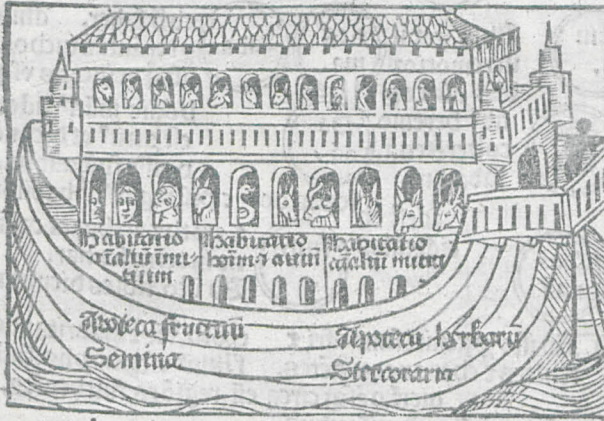 Habitatio
aīaliū imi-
tium
Habitatio
hoīm ⁊ auiū
Habitatio
aīaliū mitiū
Apoteca fructuū
Semina
Apoteca herbarū
Stercoraria